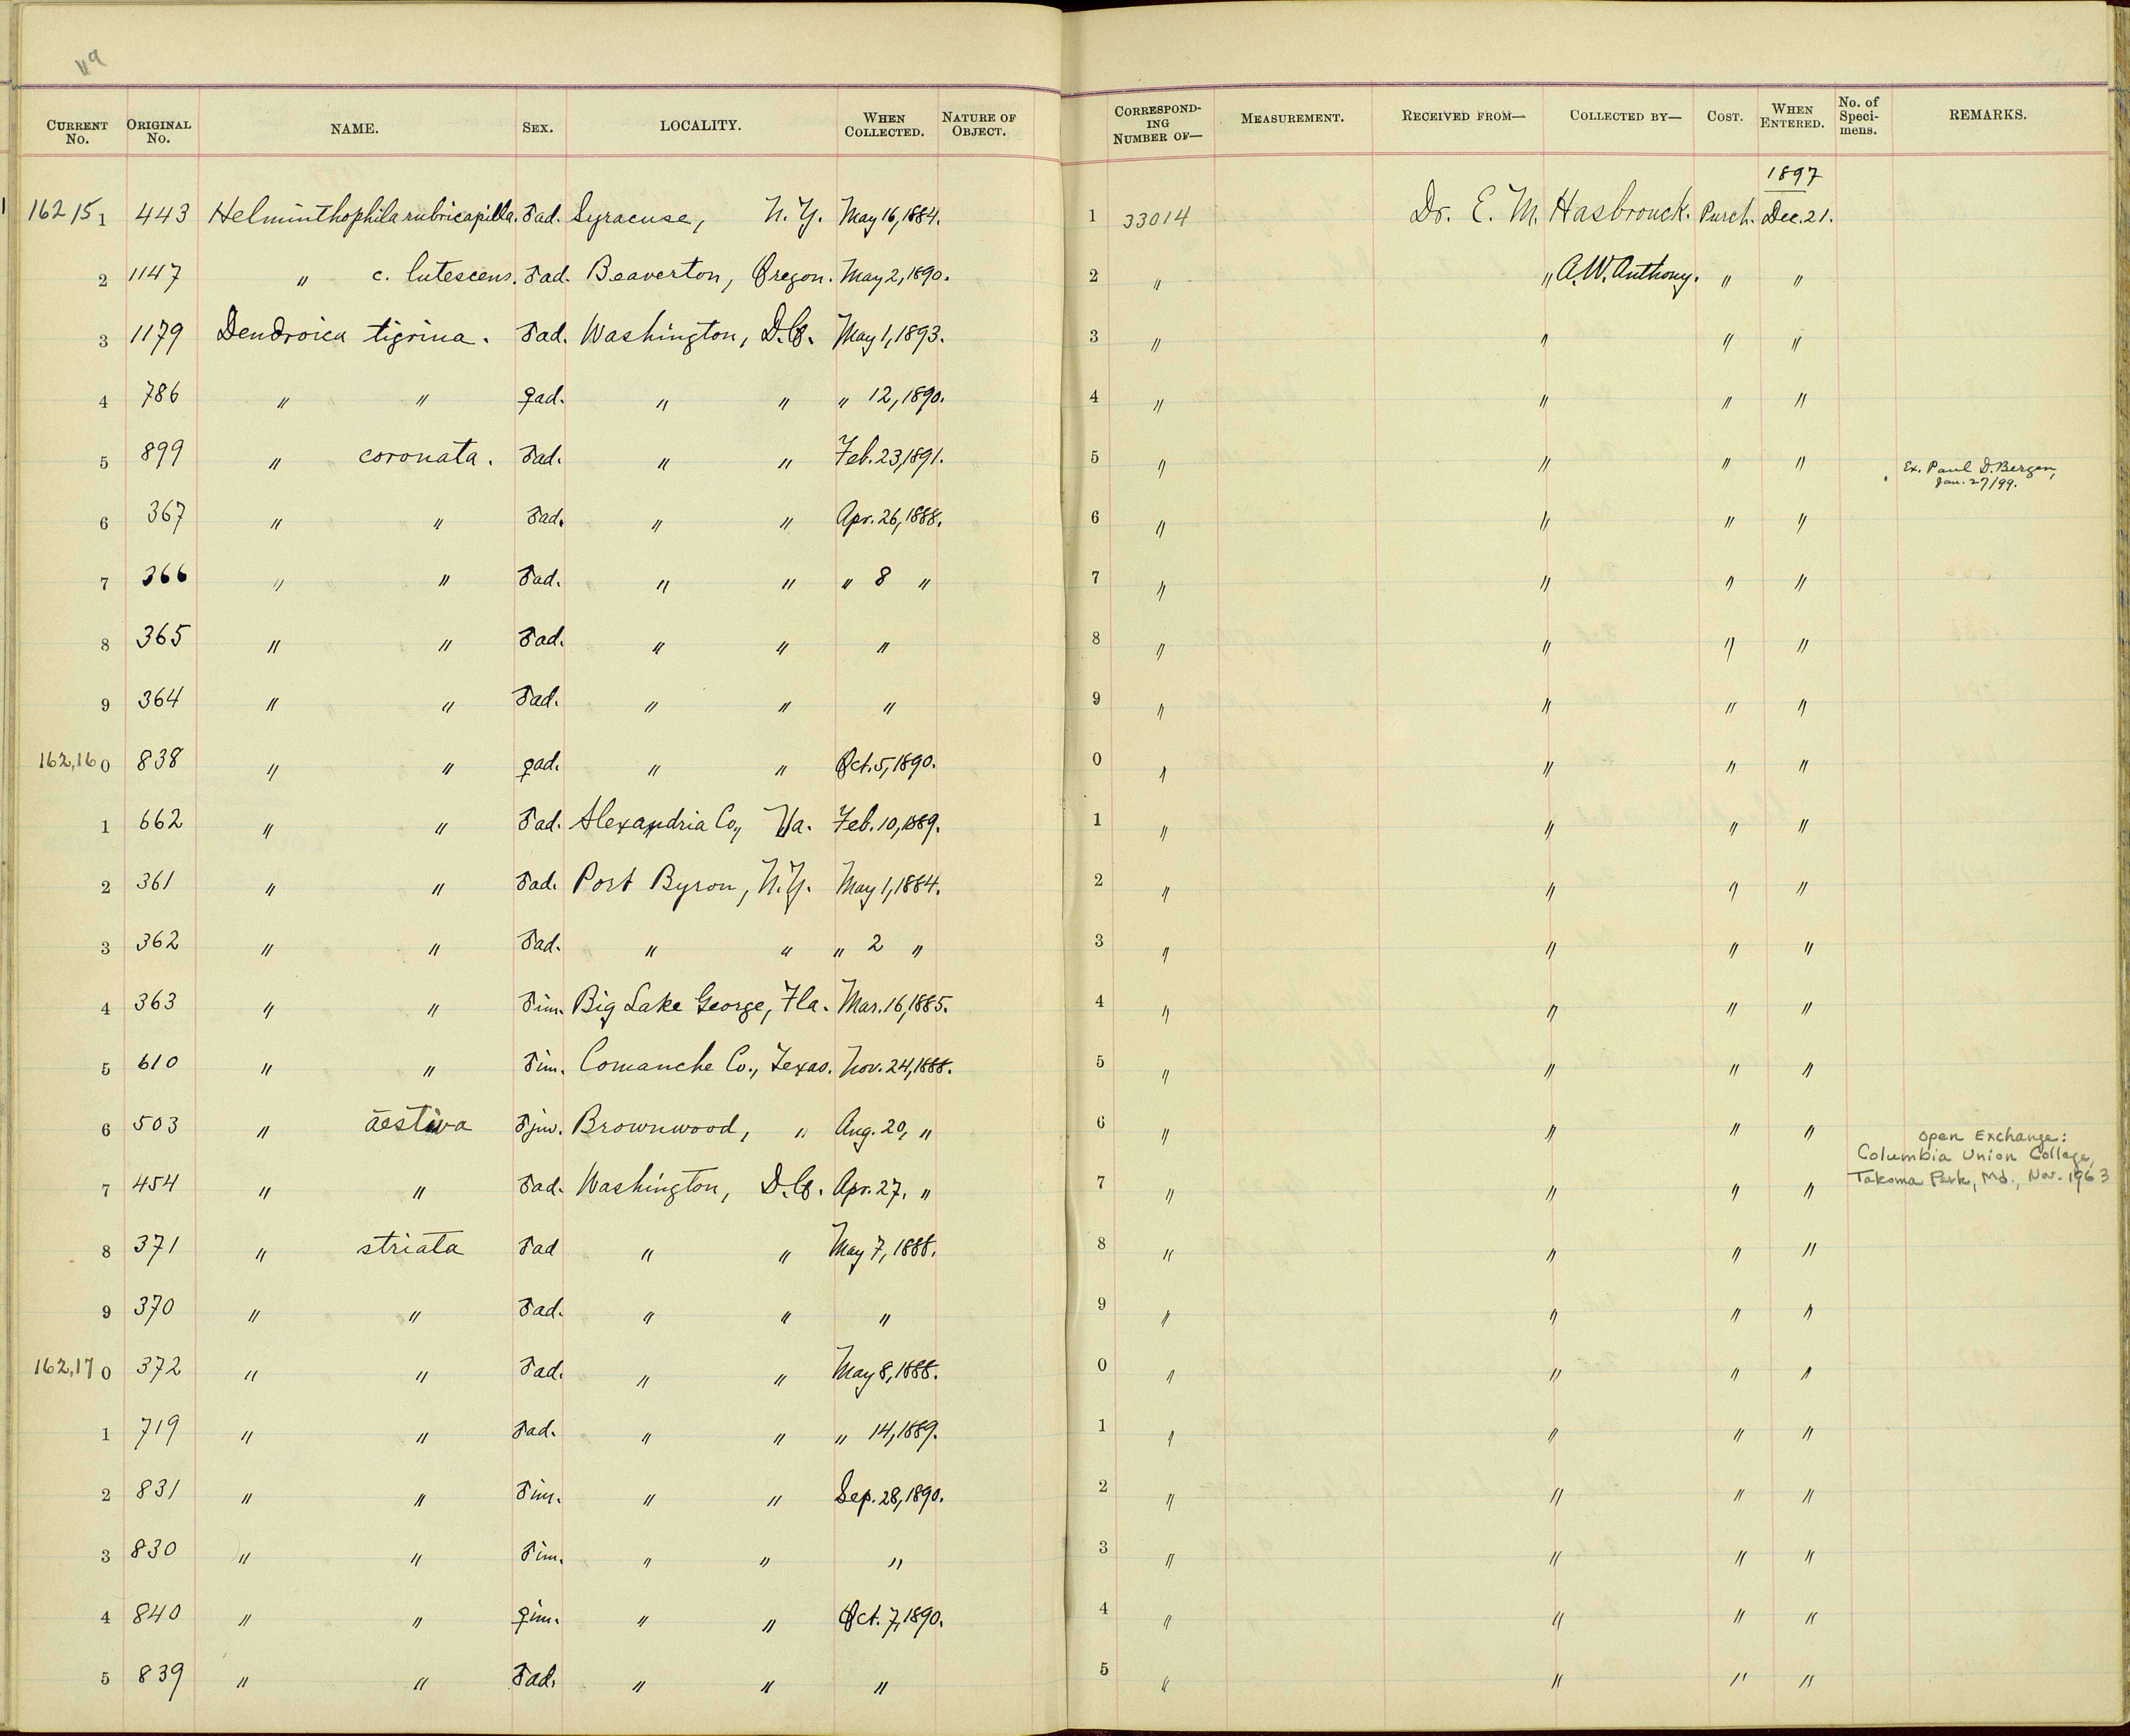 119
CURRENT No. ORIGINAL No. NAME. SEX. LOCALITY. WHEN COLLECTED. NATURE OF OBJECT. CORRESPONDING NUMBER OF— MEASUREMENT. RECEIVED FROM— COLLECTED BY— COST. WHEN ENTERED. No. of Specimens. REMARKS.
1897
162151 443 Helminthophila rubricapilla. ♂ad. Syracuse, N.Y. May 16, 1884. 1 33014 Dr. E. M. Hasbrouck. Purch. Dec. 21.
2 1147 " c. lutescens. ♂ad. Beaverton, Oregon. May 2, 1890. 2 " " A.W. Anthony. " "
3 1179 Dendroica tigrina. ♂ad. Washington, D.C. May 1, 1893. 3 " " " "
4 786 " " ♀ad. " " " 12, 1890. 4 " " " "
5 899 " coronata. ♂ad. " " Feb. 23, 1891. 5 " " " " Ex. Paul D. Bergen, Jan. 27/99.
6 367 " " ♂ad. " " Apr. 26, 1888. 6 " " " "
7 366 " " ♂ad. " " " 8 " 7 " " " "
8 365 " " ♂ad. " " " 8 " " " "
9 364 " " ♂ad. " " " 9 " " " "
162,160 838 " " ♀ad. " " Oct. 5, 1890. 0 " " " "
1 662 " " ♂ad. Alexandria Co., Va. Feb. 10, 1889. 1 " " " "
2 361 " " ♂ad. Port Byron, N.Y. May 1, 1884. 2 " " " "
3 362 " " ♂ad. " " " 2 " 3 " " " "
4 363 " " ♂im. Big Lake George, Fla. Mar. 16, 1885. 4 " " " "
5 610 " " ♂im. Comanche Co., Texas. Nov. 24, 1888. 5 " " " "
6 503 " aestiva ♂juv. Brownwood, " Aug. 20, " 6 " " " "
7 454 " " ♂ad. Washington, D.C. Apr. 27, " 7 " " " " Open Exchange: Columbia Union College, Takoma Park, Md., Nov. 1963
8 371 " striata ♂ad " " May 7, 1888. 8 " " " "
9 370 " " ♂ad. " " " 9 " " " "
162,170 372 " " ♂ad. " " May 8, 1888. 0 " " " "
1 719 " " ♂ad. " " " 14, 1889. 1 " " " "
2 831 " " ♂im. " " Sep. 28, 1890. 2 " " " "
3 830 " " ♂im. " " " 3 " " " "
4 840 " " ♀im. " " Oct. 7, 1890. 4 " " " "
5 839 " " ♂ad. " " " 5 " " " "